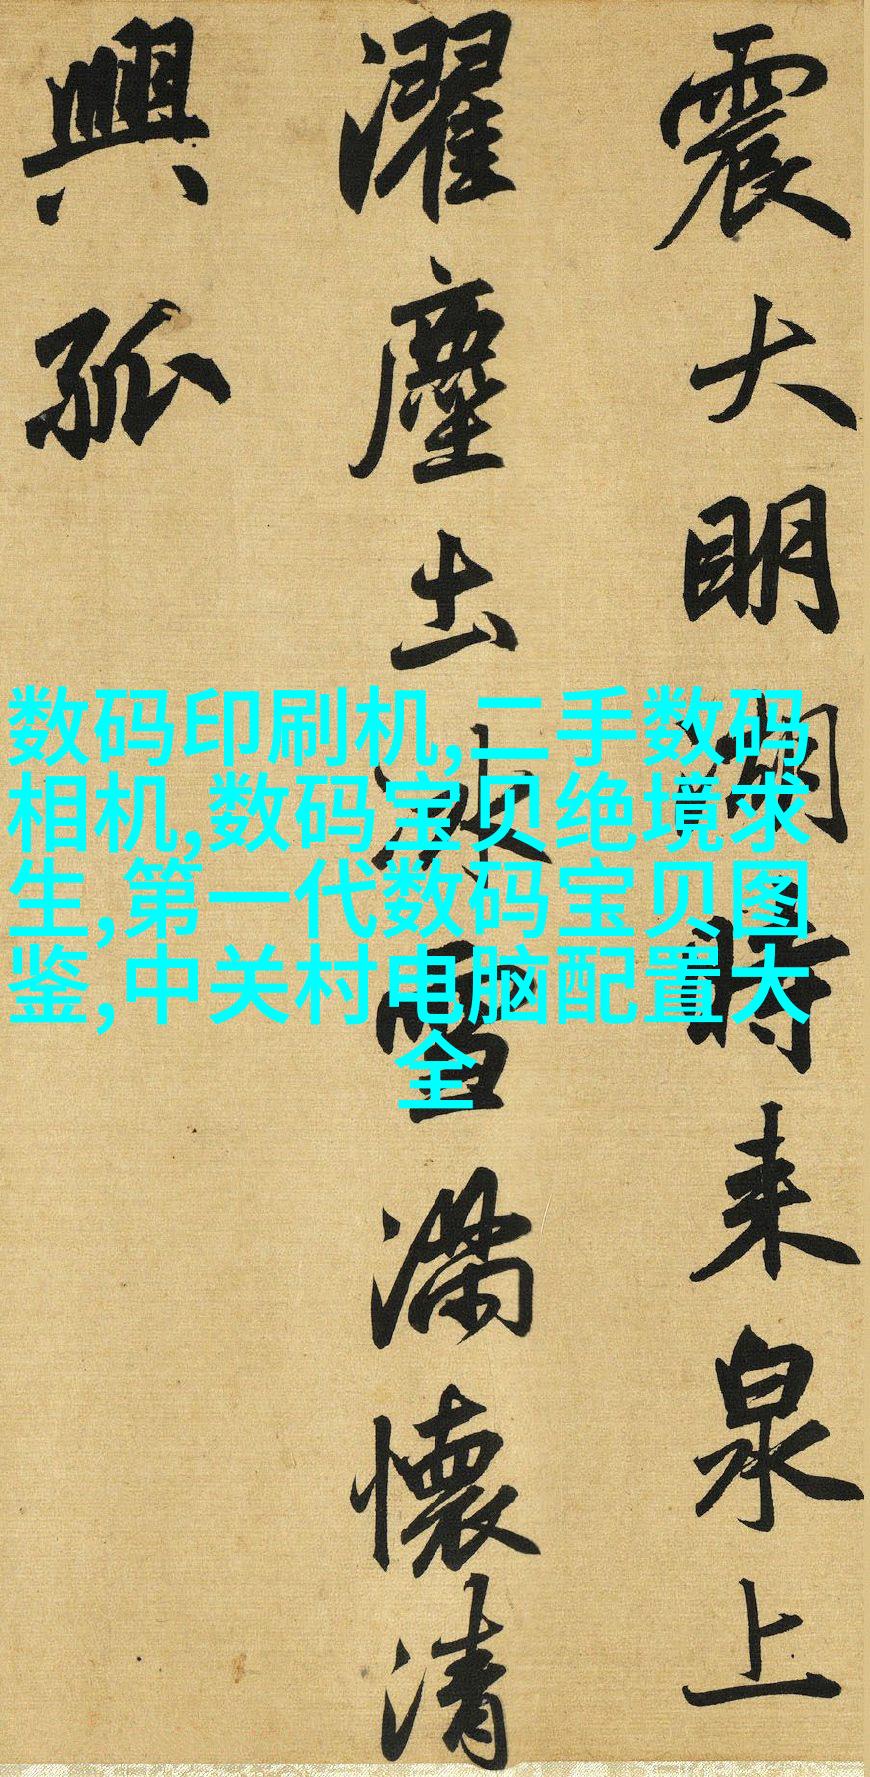 震大明湖時来泉上
濯塵土冰雪滿懷清
興孤
数码印刷机,二手数码
相机,数码宝贝绝境求
生,第一代数码宝贝图
鉴,中关村电脑配置大
全